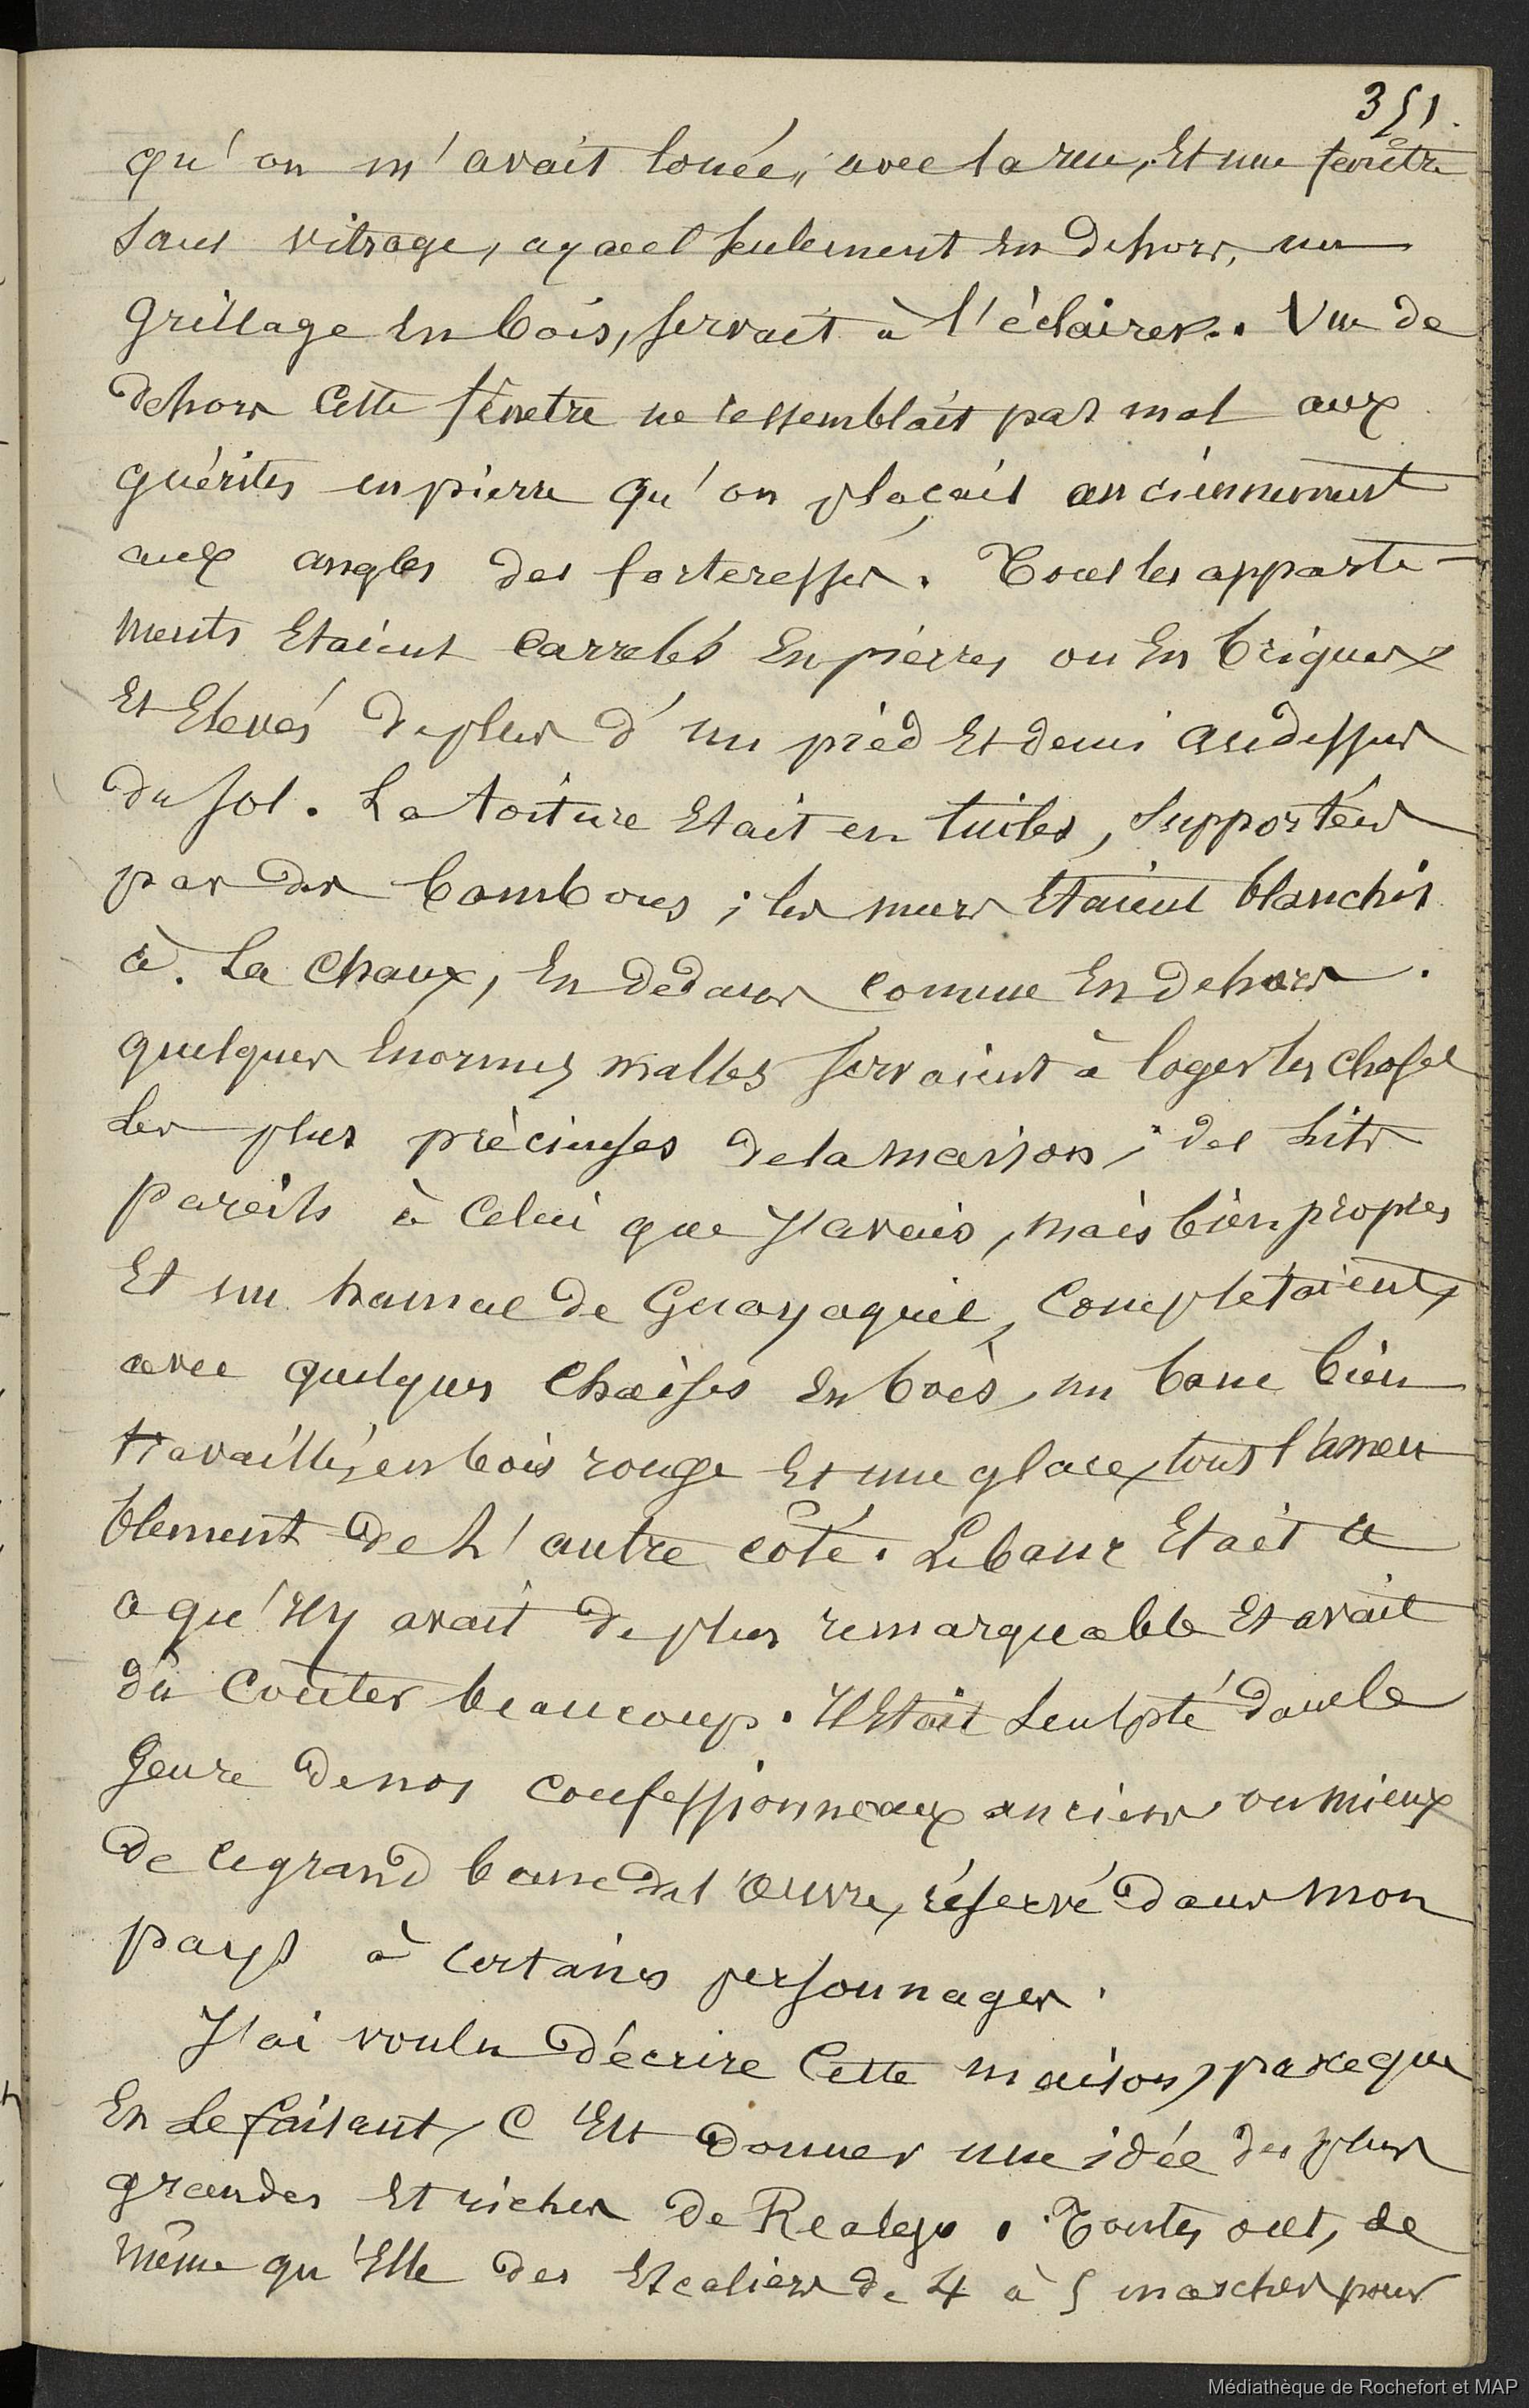 351.
qu'on m'avait louée, avec la rue, Et une fenêtre
sans vitrage, ayant seulement en dehors, un
grillage en bois, servait à l'éclairer.. Vue de
dehors cette fenetre ne ressemblait pas mal aux
guérites en pierre qu'on plaçait anciennement
aux angles des forteresses. Tous les apparte-
ments Etaient carrelés En pierres ou En briques
Et Elevés de plus d'un pied Et demi au dessus
du sol. La toiture Etait en tuiles, supportées
par des bambous ; les murs Etaient blanchis
à. la chaux, En dedans comme En dehors.
quelques Enormes malles servaient à loger les choses
les plus précieuses de la maison ; des lits
pareils à celui que J'avais, mais bien propres
Et un hamac de Guayaquil, completaient,
avec quelques chaises en bois, un banc bien
travaillé, en bois rouge Et une glace, tout l'ameu
blement de L'autre côté. Le banc Etait ce
qu'Il y avait de plus remarquable Et avait
dû couter beaucoup. Il Etait sculpté dans le
genre de nos confessionneaux anciens ou mieux
de ce grand banc de l'œuvre, réservé dans mon
pays à certains personnages.
J'ai voulu décrire cette maison, parceque
En le faisant, C'Est donner une idée des plus
grandes Et riches de Realejo. Toutes ont, de
même qu'Elle des Escaliers de 4 à 5 marches pour
Médiathèque de Rochefort et MAP